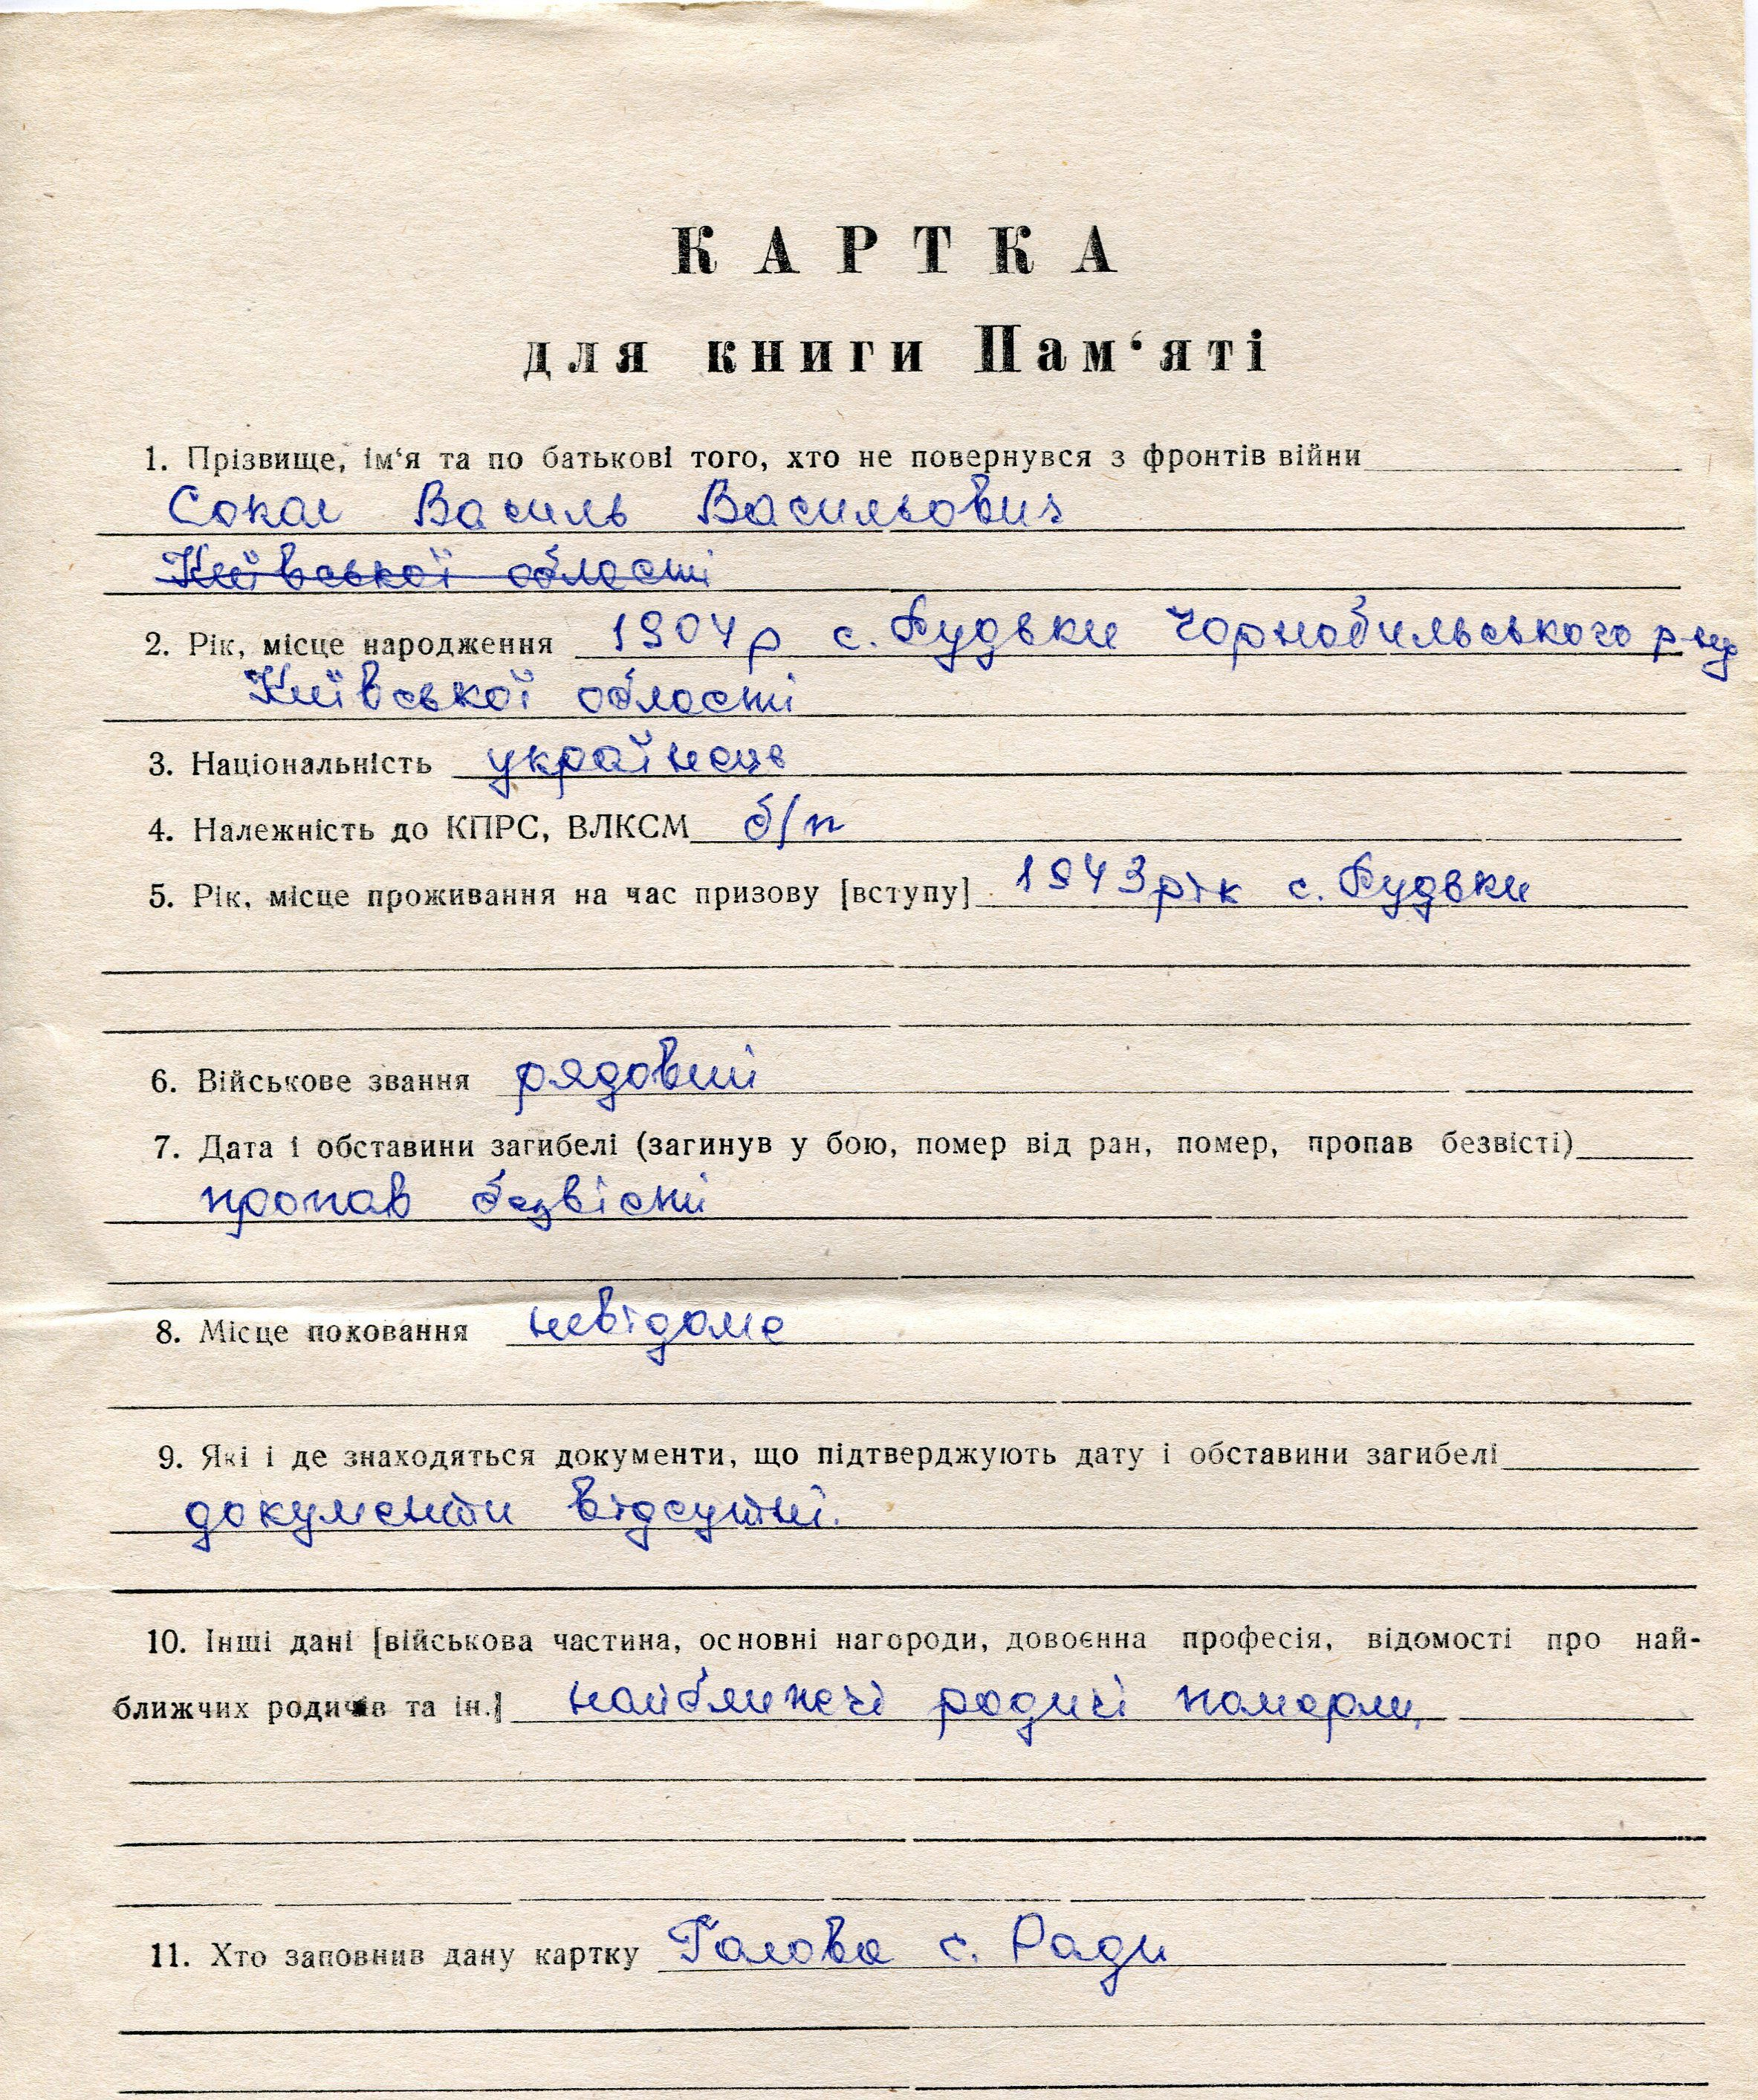 КАРТКА
для книги Пам‘яті
1. Прізвище, ім‘я та по батькові того, хто не повернувся з фронтів війни
Сокол Василь Васильович
Київської області
2. Рік, місце народження 1904 р с. Рудьки Чорнобильського р-ну
Київської області
3. Національність українець
4. Належність до КПРС, ВЛКСМ б/п
5. Рік, місце проживання на час призову [вступу] 1943 рік с. Рудьки
6. Військове звання рядовий
7. Дата і обставини загибелі (загинув у бою, помер від ран, помер, пропав безвісті)
пропав безвісті
8. Місце поховання невідоме
9. Які і де знаходяться документи, що підтверджують дату і обставини загибелі
документи відсутні.
10. Інші дані [військова частина, основні нагороди, довоєнна професія, відомості про най-
ближчих родичів та ін.] найближчі родичі померли,
11. Хто заповнив дану картку Голова с. Ради